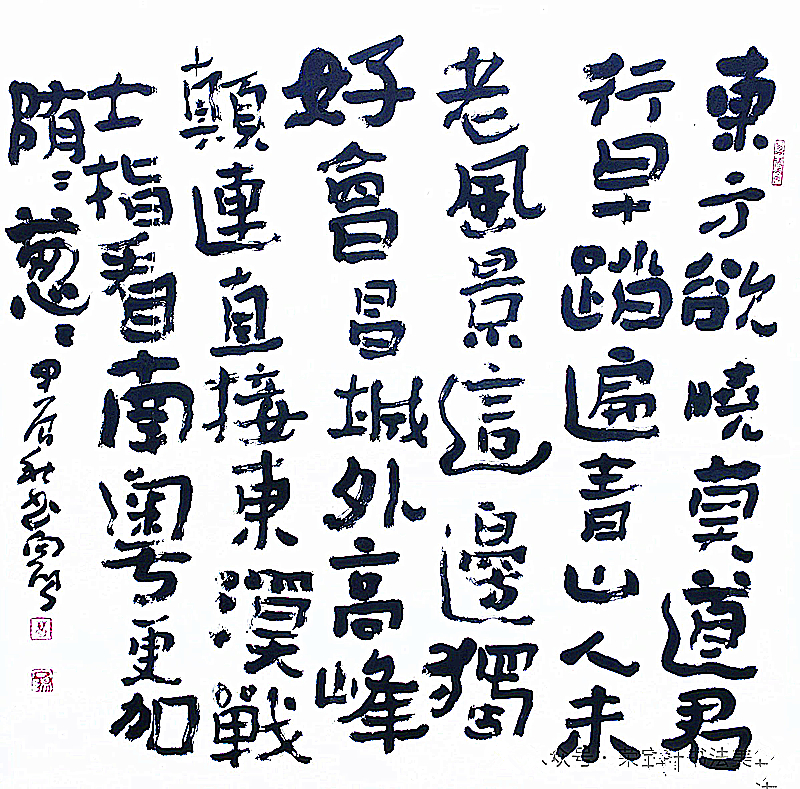 東方欲曉莫道君
行早踏遍青山人未
老風景這邊獨
好會昌城外高峰
顛連直接東溟戰
士指看南粵更加
郁〻葱〻
甲辰秋书
众号·荣宝轩书法美